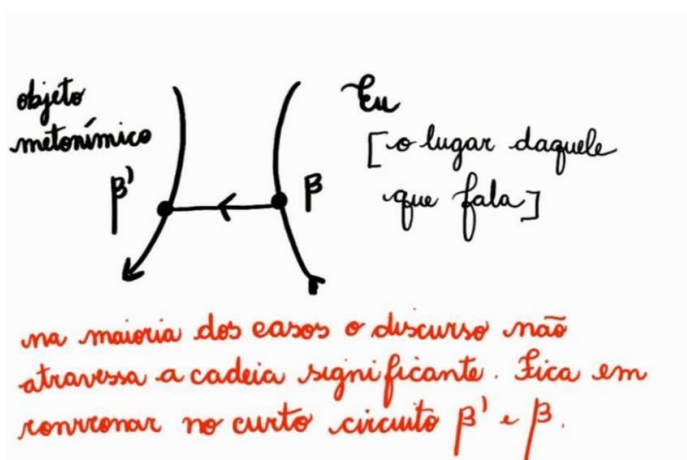 objeto
metonímico
β'
β
Eu
[o lugar daquele
que fala]
na maioria dos casos o discurso não
atravessa a cadeia significante. Fica em
ronronar no curto circuito β' e β.